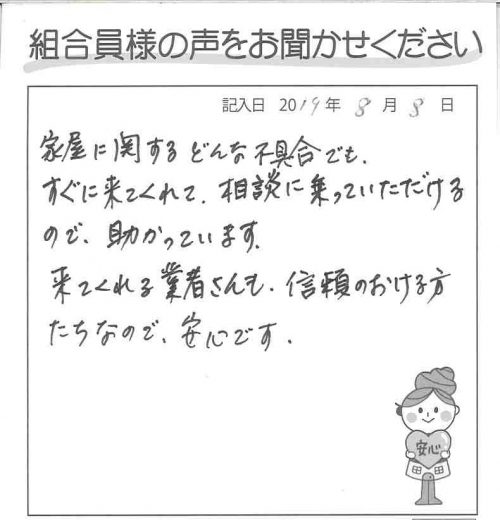 組合員様の声をお聞かせください
記入日 2019年 8月 8日
家屋に関するどんな不具合でも、
すぐに来てくれて、相談に乗っていただける
ので、助かっています。
来てくれる業者さんも、信頼のおける方
たちなので、安心です。
安心